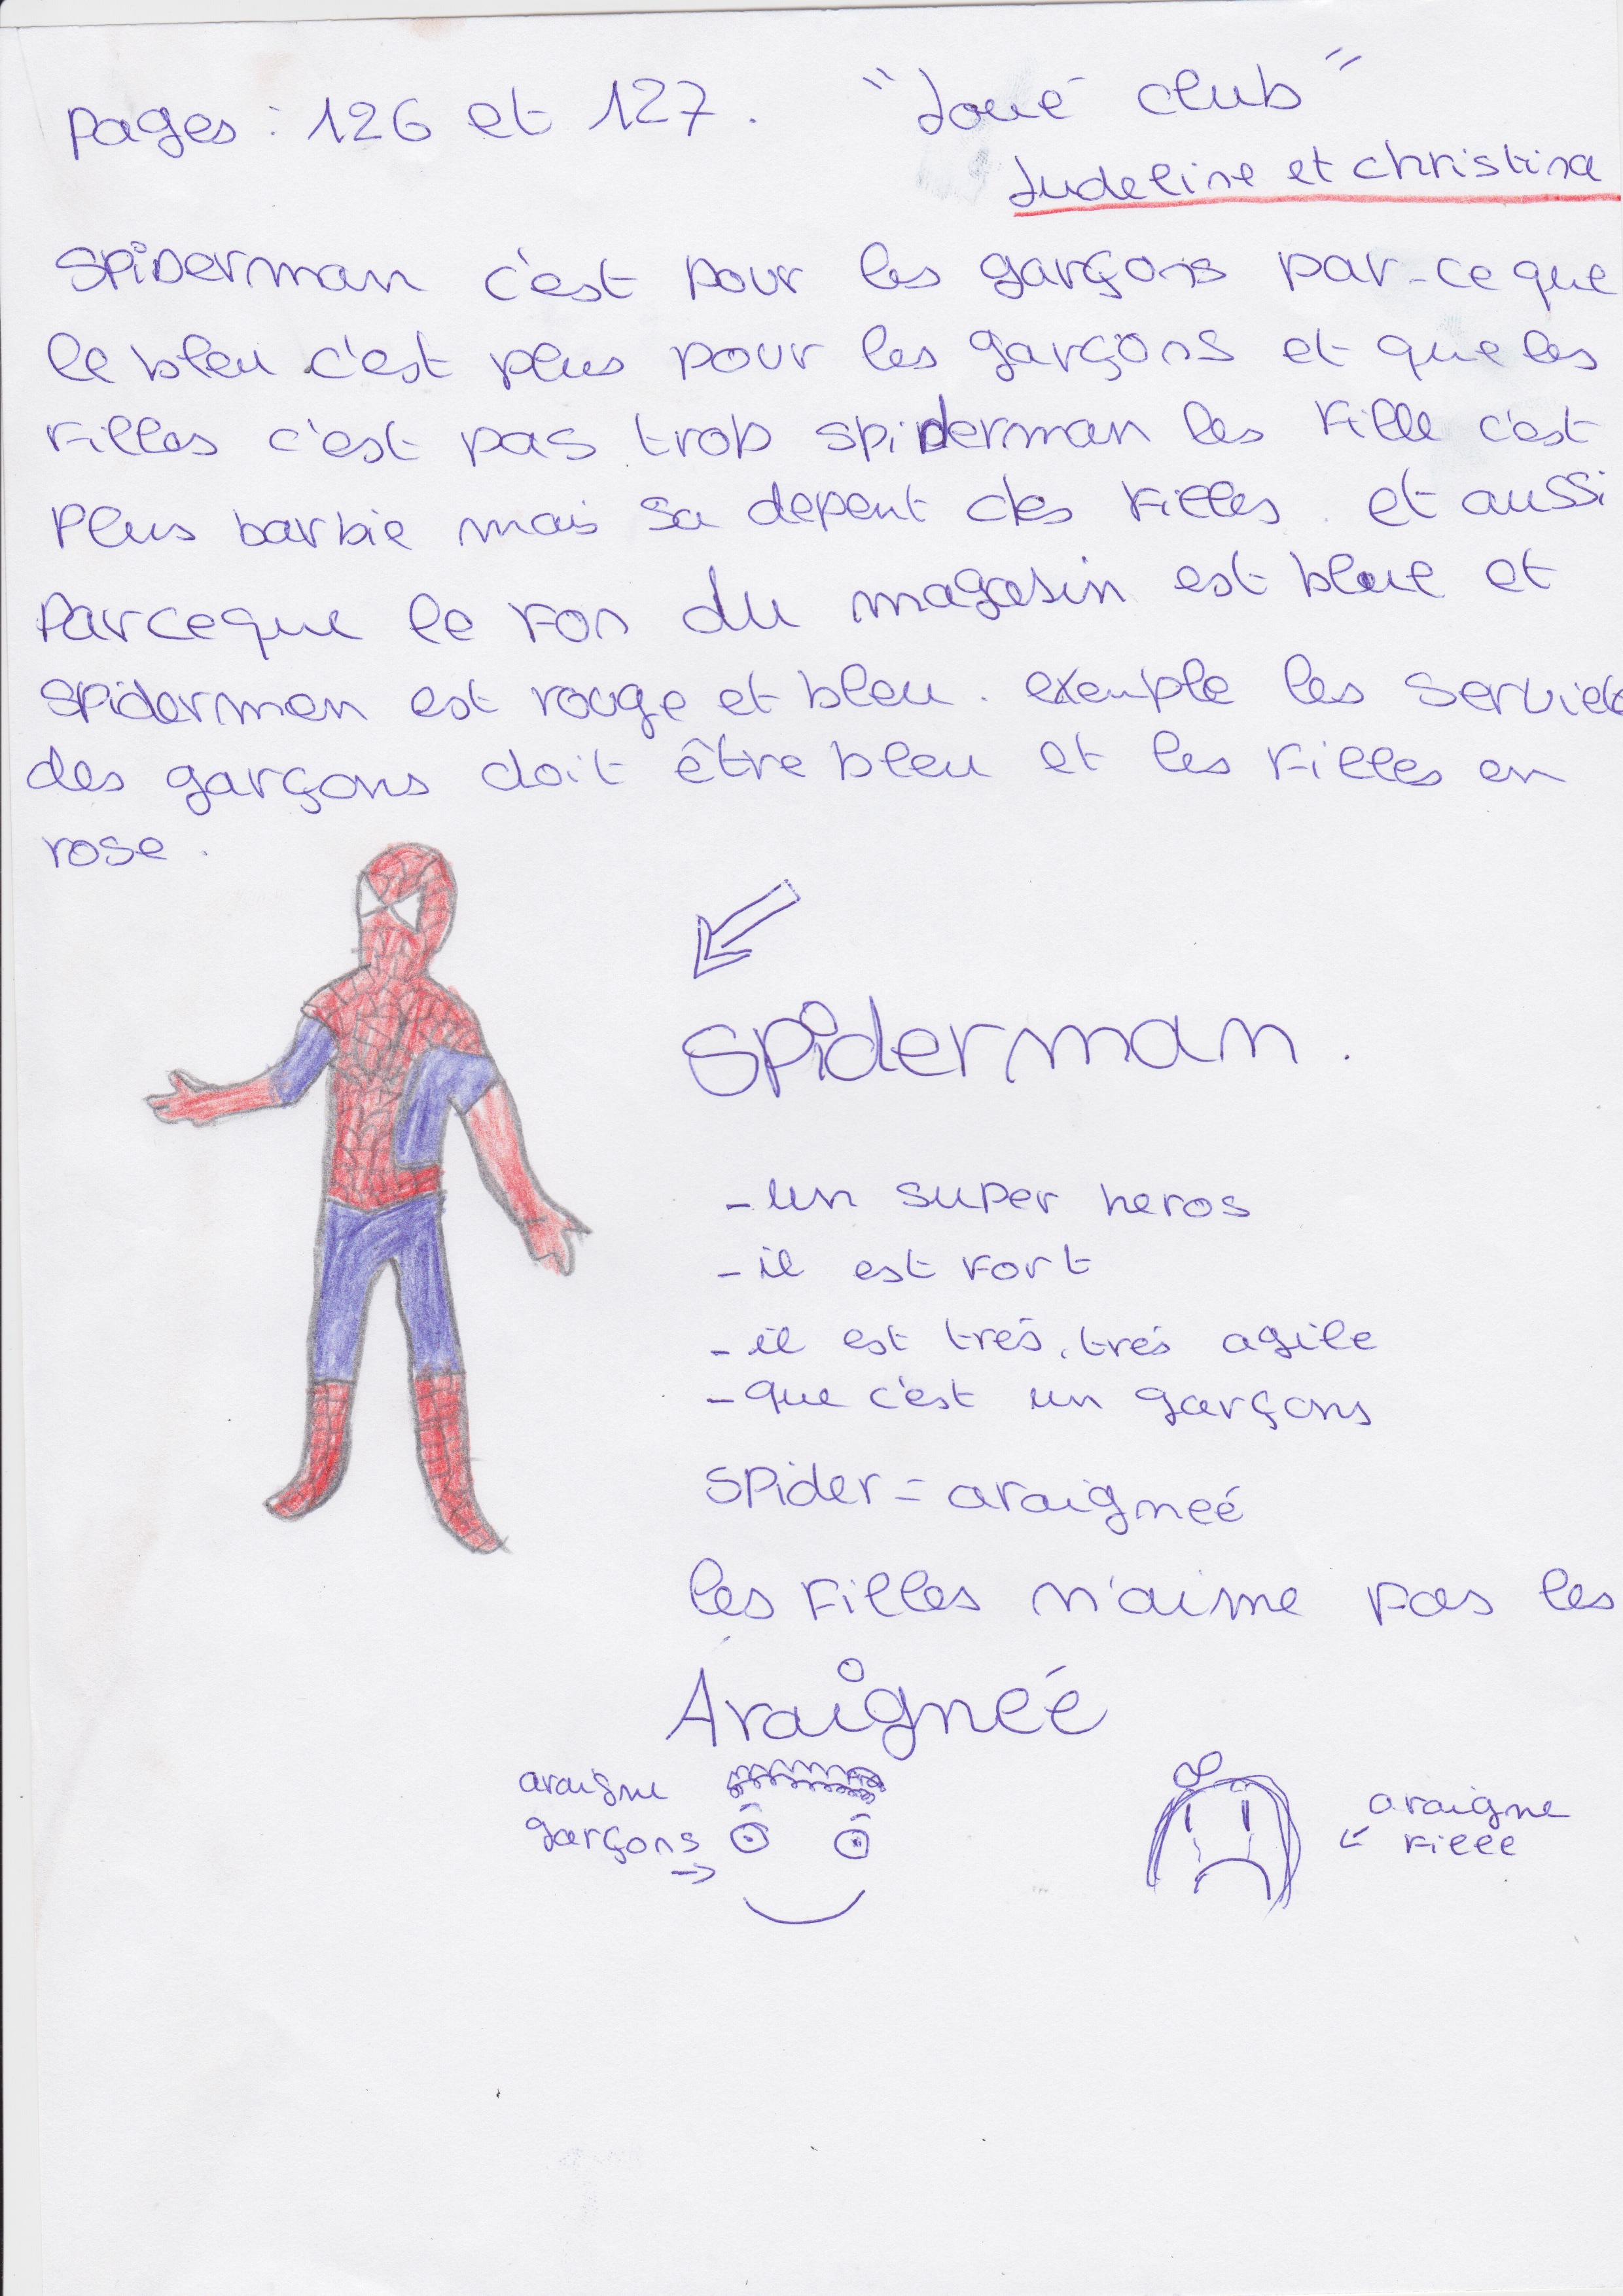 pages : 126 et 127. "Joué club"
Judeline et christina
Spiderman c'est pour les garçons par-ce que
le bleu c'est plus pour les garçons et que les
filles c'est pas trop spiderman les fille c'est
Plus barbie mais sa depent des filles. et aussi
Parceque le fon du magasin est bleue et
spiderman est rouge et bleu. exemple les serviet
des garçons doit être bleu et les filles en
rose.
Spiderman.
- un super heros
- il est fort
- il est trés, trés agile
- que c'est un garçons
Spider = araigneé
les filles n'aime pas les
Araigneé
araigne
garçons
araigne
fille